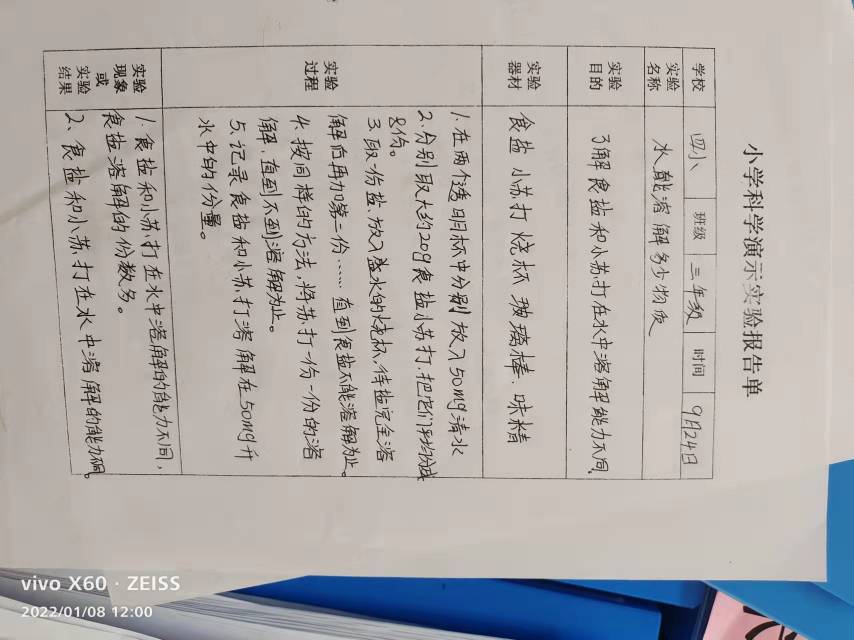 小学科学演示实验报告单
学校 四小 班级 三年级 时间 9月24日
实验名称 水能溶解多少物质
实验目的 了解食盐和小苏打在水中溶解能力不同
实验器材 食盐 小苏打 烧杯 玻璃棒、味精
实验过程
1. 在两个透明杯中分别放入50mg清水
2. 分别取大约20g食盐小苏打,把它们平均分成
8份。
3. 取一份盐、放入盛水的烧杯,待盐完全溶
解后再加第二份……直到食盐不能溶解为止。
4. 按同样的方法,将苏打一份一份的溶
解,直到不到溶解为止。
5. 记录食盐和小苏打溶解在50mg升
水中的份量。
实验现象或实验结果
1. 食盐和小苏打在水中溶解的能力不同,
食盐溶解的份数多。
2、食盐和小苏打在水中溶解的能力
vivo X60 · ZEISS
2022/01/08 12:00